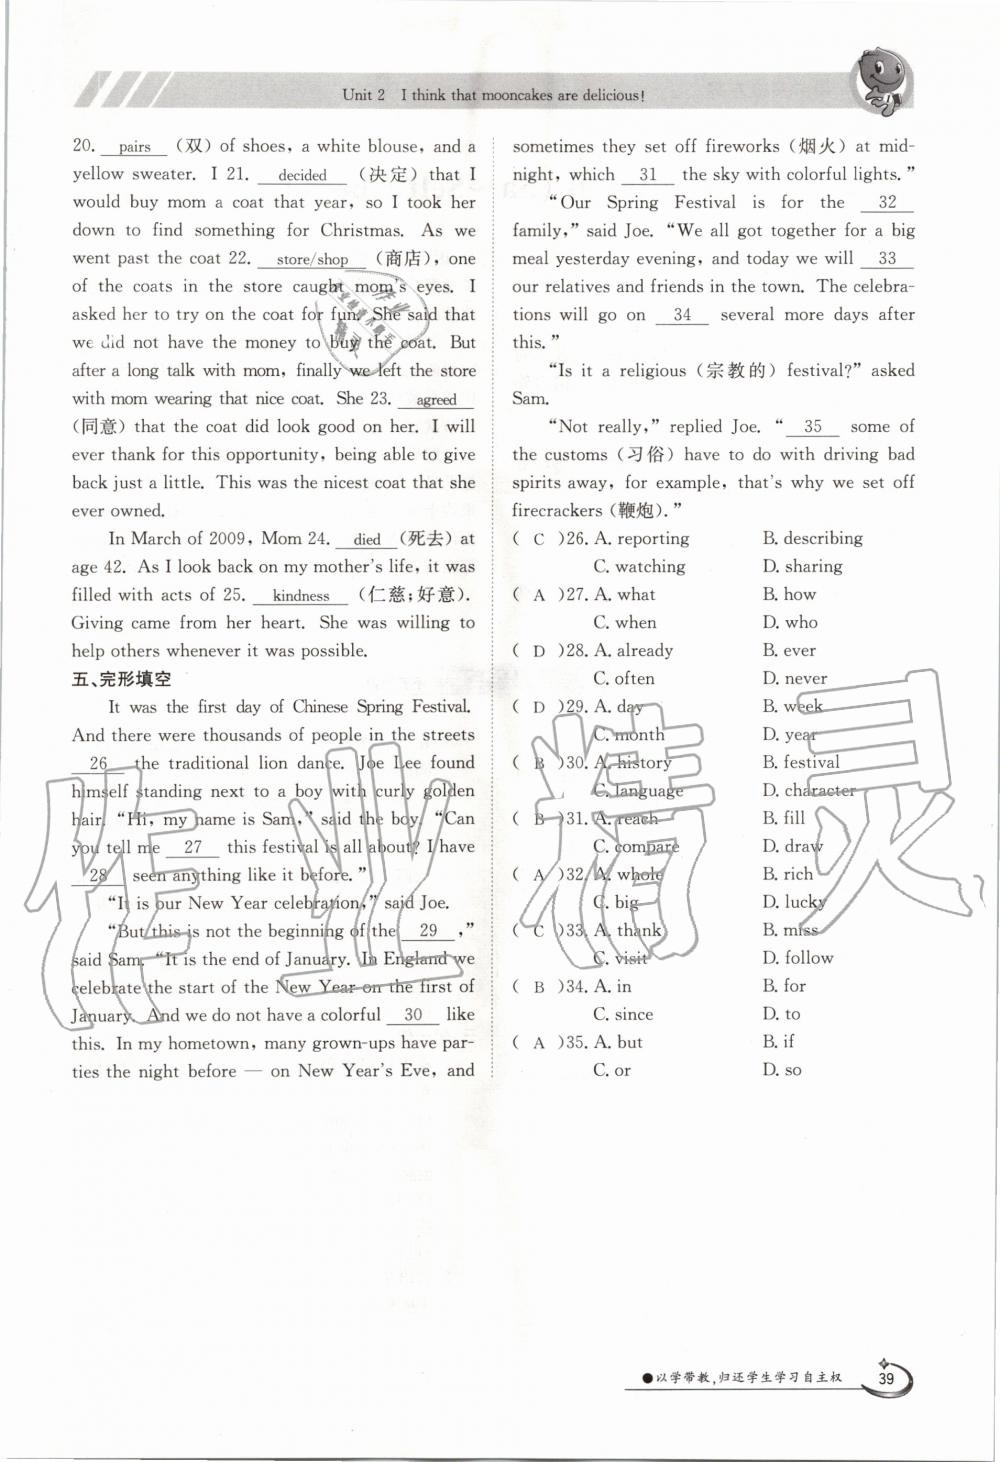 Unit 2 I think that mooncakes are delicious!
20. pairs (双) of shoes, a white blouse, and a
yellow sweater. I 21. decided (决定) that I
would buy mom a coat that year, so I took her
down to find something for Christmas. As we
went past the coat 22. store/shop (商店), one
of the coats in the store caught mom's eyes. I
asked her to try on the coat for fun. She said that
we did not have the money to buy the coat. But
after a long talk with mom, finally we left the store
with mom wearing that nice coat. She 23. agreed
(同意) that the coat did look good on her. I will
ever thank for this opportunity, being able to give
back just a little. This was the nicest coat that she
ever owned.
In March of 2009, Mom 24. died (死去) at
age 42. As I look back on my mother's life, it was
filled with acts of 25. kindness (仁慈;好意).
Giving came from her heart. She was willing to
help others whenever it was possible.
五、完形填空
It was the first day of Chinese Spring Festival.
And there were thousands of people in the streets
26 the traditional lion dance. Joe Lee found
himself standing next to a boy with curly golden
hair. "Hi, my name is Sam," said the boy. "Can
you tell me 27 this festival is all about? I have
28 seen anything like it before."
"It is our New Year celebration," said Joe.
"But this is not the beginning of the 29 ,"
said Sam. "It is the end of January. In England we
celebrate the start of the New Year on the first of
January. And we do not have a colorful 30 like
this. In my hometown, many grown-ups have par-
ties the night before — on New Year's Eve, and
sometimes they set off fireworks (烟火) at mid-
night, which 31 the sky with colorful lights."
"Our Spring Festival is for the 32
family," said Joe. "We all got together for a big
meal yesterday evening, and today we will 33
our relatives and friends in the town. The celebra-
tions will go on 34 several more days after
this."
"Is it a religious (宗教的) festival?" asked
Sam.
"Not really," replied Joe. " 35 some of
the customs (习俗) have to do with driving bad
spirits away, for example, that's why we set off
firecrackers (鞭炮)."
( C )26. A. reporting B. describing
C. watching D. sharing
( A )27. A. what B. how
C. when D. who
( D )28. A. already B. ever
C. often D. never
( D )29. A. day B. week
C. month D. year
( B )30. A. history B. festival
C. language D. character
( B )31. A. reach B. fill
C. compare D. draw
( A )32. A. whole B. rich
C. big D. lucky
( C )33. A. thank B. miss
C. visit D. follow
( B )34. A. in B. for
C. since D. to
( A )35. A. but B. if
C. or D. so
作业精灵
●以学带教,归还学生学习自主权 39